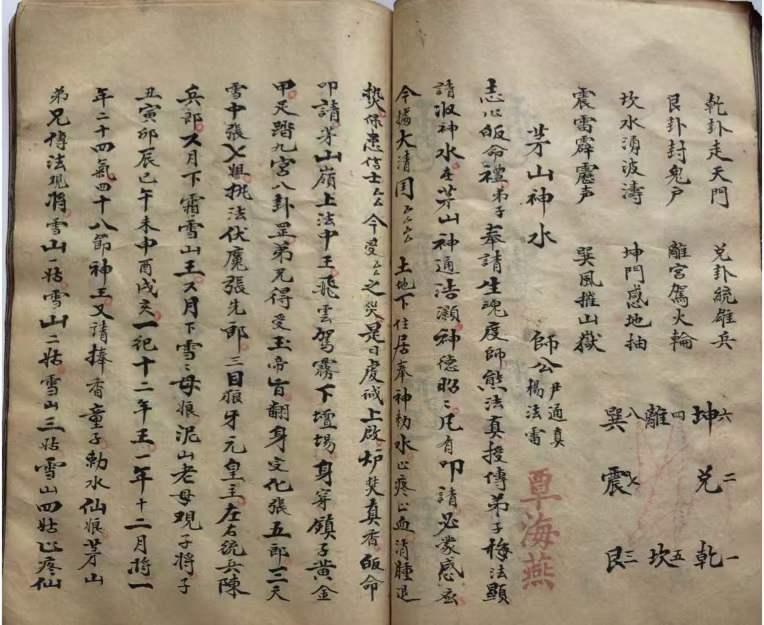 乾卦走天門 兌卦統雄兵
艮卦封鬼戶 離宮駕火輪
坎水湧波濤 坤門惑地抽
震雷霹靂声 巽風摧山嶽
六坤 二兌 一乾
四離 五坎
八巽 七震 三艮
茅山神水 師公 尹通真 楊法雷
覃海燕
志心皈命禮弟子奉請生魂度師熊法真授傳弟子楊法顯
請收神水在茅山神通浩瀚神德昭々凡有叩請必蒙感应
今據大清囯厶厶厶土地下住居奉神勅水止疼止血消腫退
熱保患信士厶厶今受厶厶之災是日虔誠上啟炉焚真香皈命
叩請茅山嶺上法中王飛雲駕霧下壇場身穿鎖子黃金
甲足踏九宮八卦罡弟兄得受玉帝旨翻身变化張五郎三天
雪中張七姐挑法伏魔張先郎三目狼牙元皇主左右統兵陳
兵郎六月下霜雪山王六月下雪々母娘泥山老母观子將子
丑寅卯辰巳午未申酉戌亥一祀十二年王一年十二月將一
年二十四氣四十八節神王又請捧香童子勅水仙娘茅山
弟兄傳法观將雪山一姑雪山二姑雪山三姑雪山四姑止疼仙